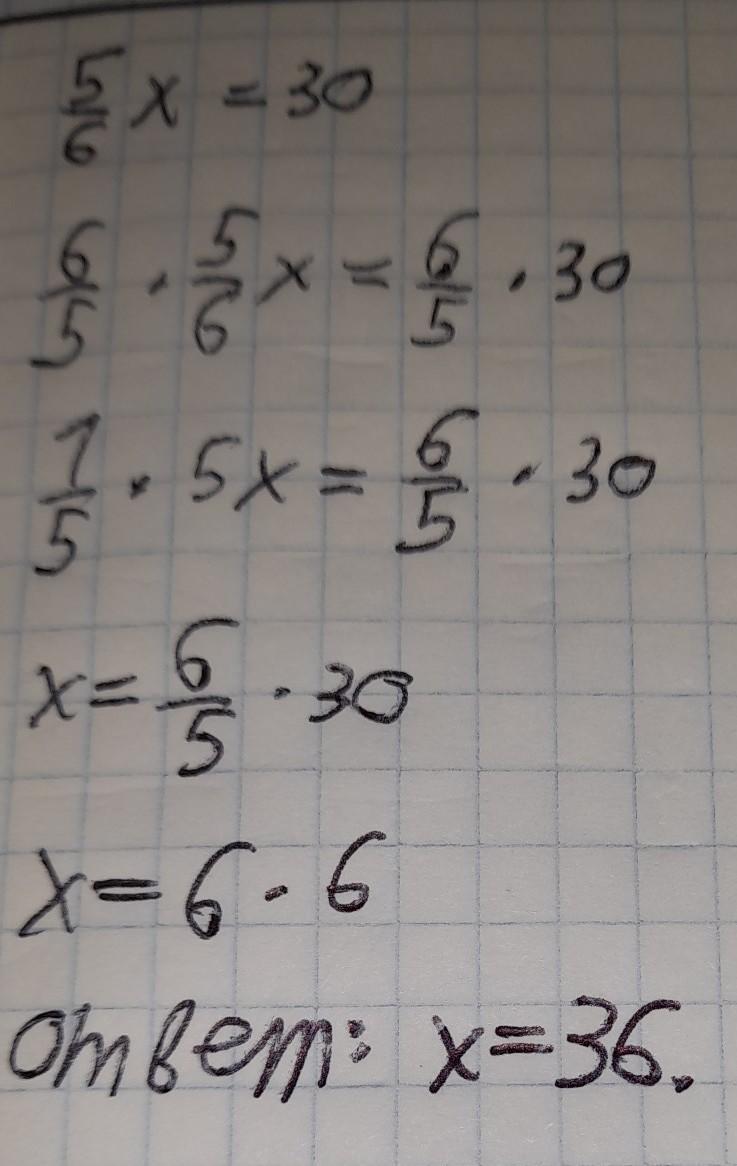 5/6 x = 30
6/5 · 5/6 x = 6/5 · 30
1/5 · 5x = 6/5 · 30
x = 6/5 · 30
x = 6 · 6
Ответ: x = 36.